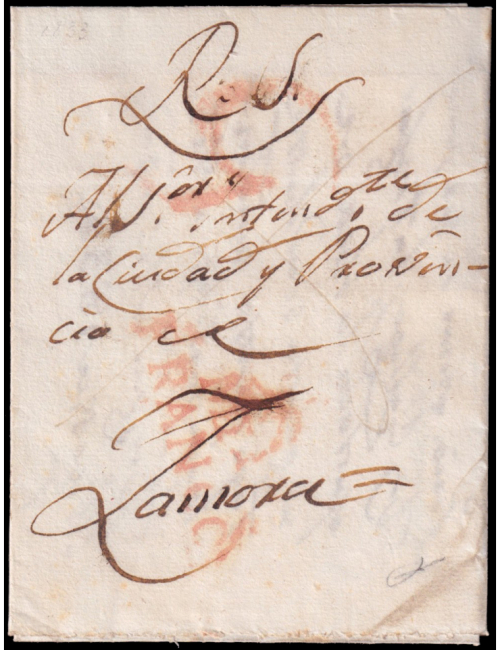 1833
R. S.
Al S.or Intend.te de
la Ciudad y Provin-
cia de
FRANCO
Zamora =